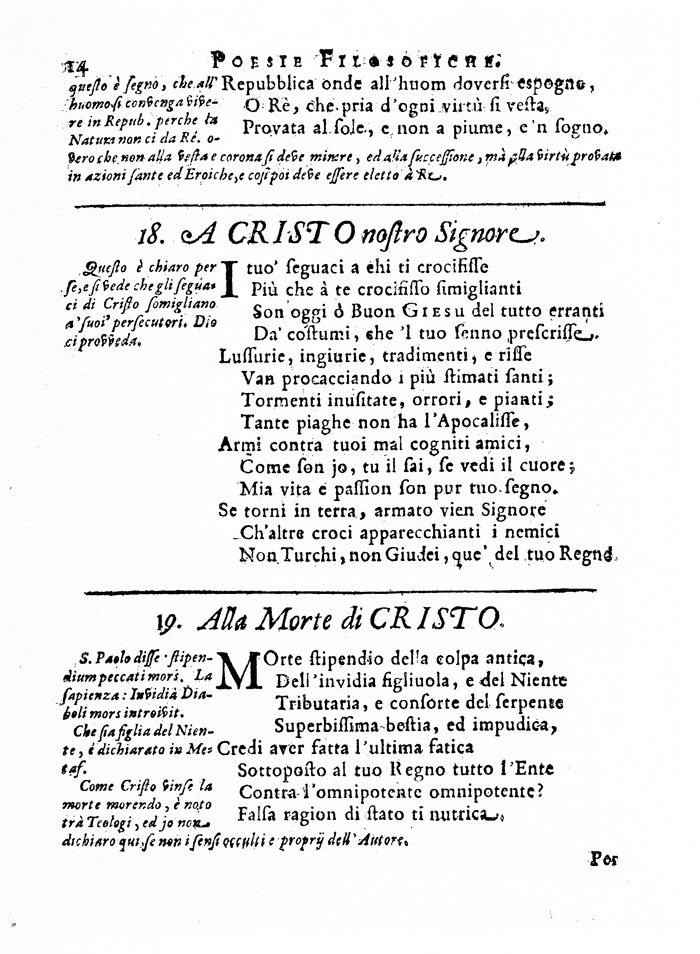 14 POESIE FILOSOFICHE.
questo è segno, che all'
huomo si convenga vive-
re in Repub. perche la
Natura non ci da Ré. o-
vero che non alla vesta e corona si deve mirare, ed alla successione, mà alla virtù provata
in azioni sante ed Eroiche, e così poi deve essere eletto à Re.
Repubblica onde all'huom doversi espogno,
O Rè, che pria d'ogni virtù si vesta,
Provata al sole, e non a piume, e'n sogno.
18. A CRISTO nostro Signore.
Questo è chiaro per
se, e si vede che gli segua-
ci di Cristo somigliano
a' suoi' persecutori. Dio
ci provveda.
I tuo' seguaci a chi ti crocifisse
Più che à te crocifisso simiglianti
Son' oggi ò Buon GIESU del tutto erranti
Da' costumi, che 'l tuo senno prescrisse.
Lussurie, ingiurie, tradimenti, e risse
Van procacciando i più stimati santi;
Tormenti inusitate, orrori, e pianti;
Tante piaghe non ha l'Apocalisse,
Armi contra tuoi mal cogniti amici,
Come son jo, tu il sai, se vedi il cuore;
Mia vita e passion son pur tuo segno.
Se torni in terra, armato vien Signore
Ch'altre croci apparecchianti i nemici
Non Turchi, non Giudei, que' del tuo Regno.
19. Alla Morte di CRISTO.
S. Paolo disse stipen-
dium peccati mors. La
sapienza: Invidia Dia-
boli mors introivit.
Che sia figlia del Nien-
te, é dichiarato in Me-
taf.
Come Cristo vinse la
morte morendo, è noto
trà Teologi, ed jo non
dichiaro qui, se non i sensi occulti e proprij dell' Autore.
MOrte stipendio della colpa antica,
Dell'invidia figliuola, e del Niente
Tributaria, e consorte del serpente
Superbissima bestia, ed impudica,
Credi aver fatta l'ultima fatica
Sottoposto al tuo Regno tutto l'Ente
Contra l'omnipotente omnipotente?
Falsa ragion di stato ti nutrica.
Per